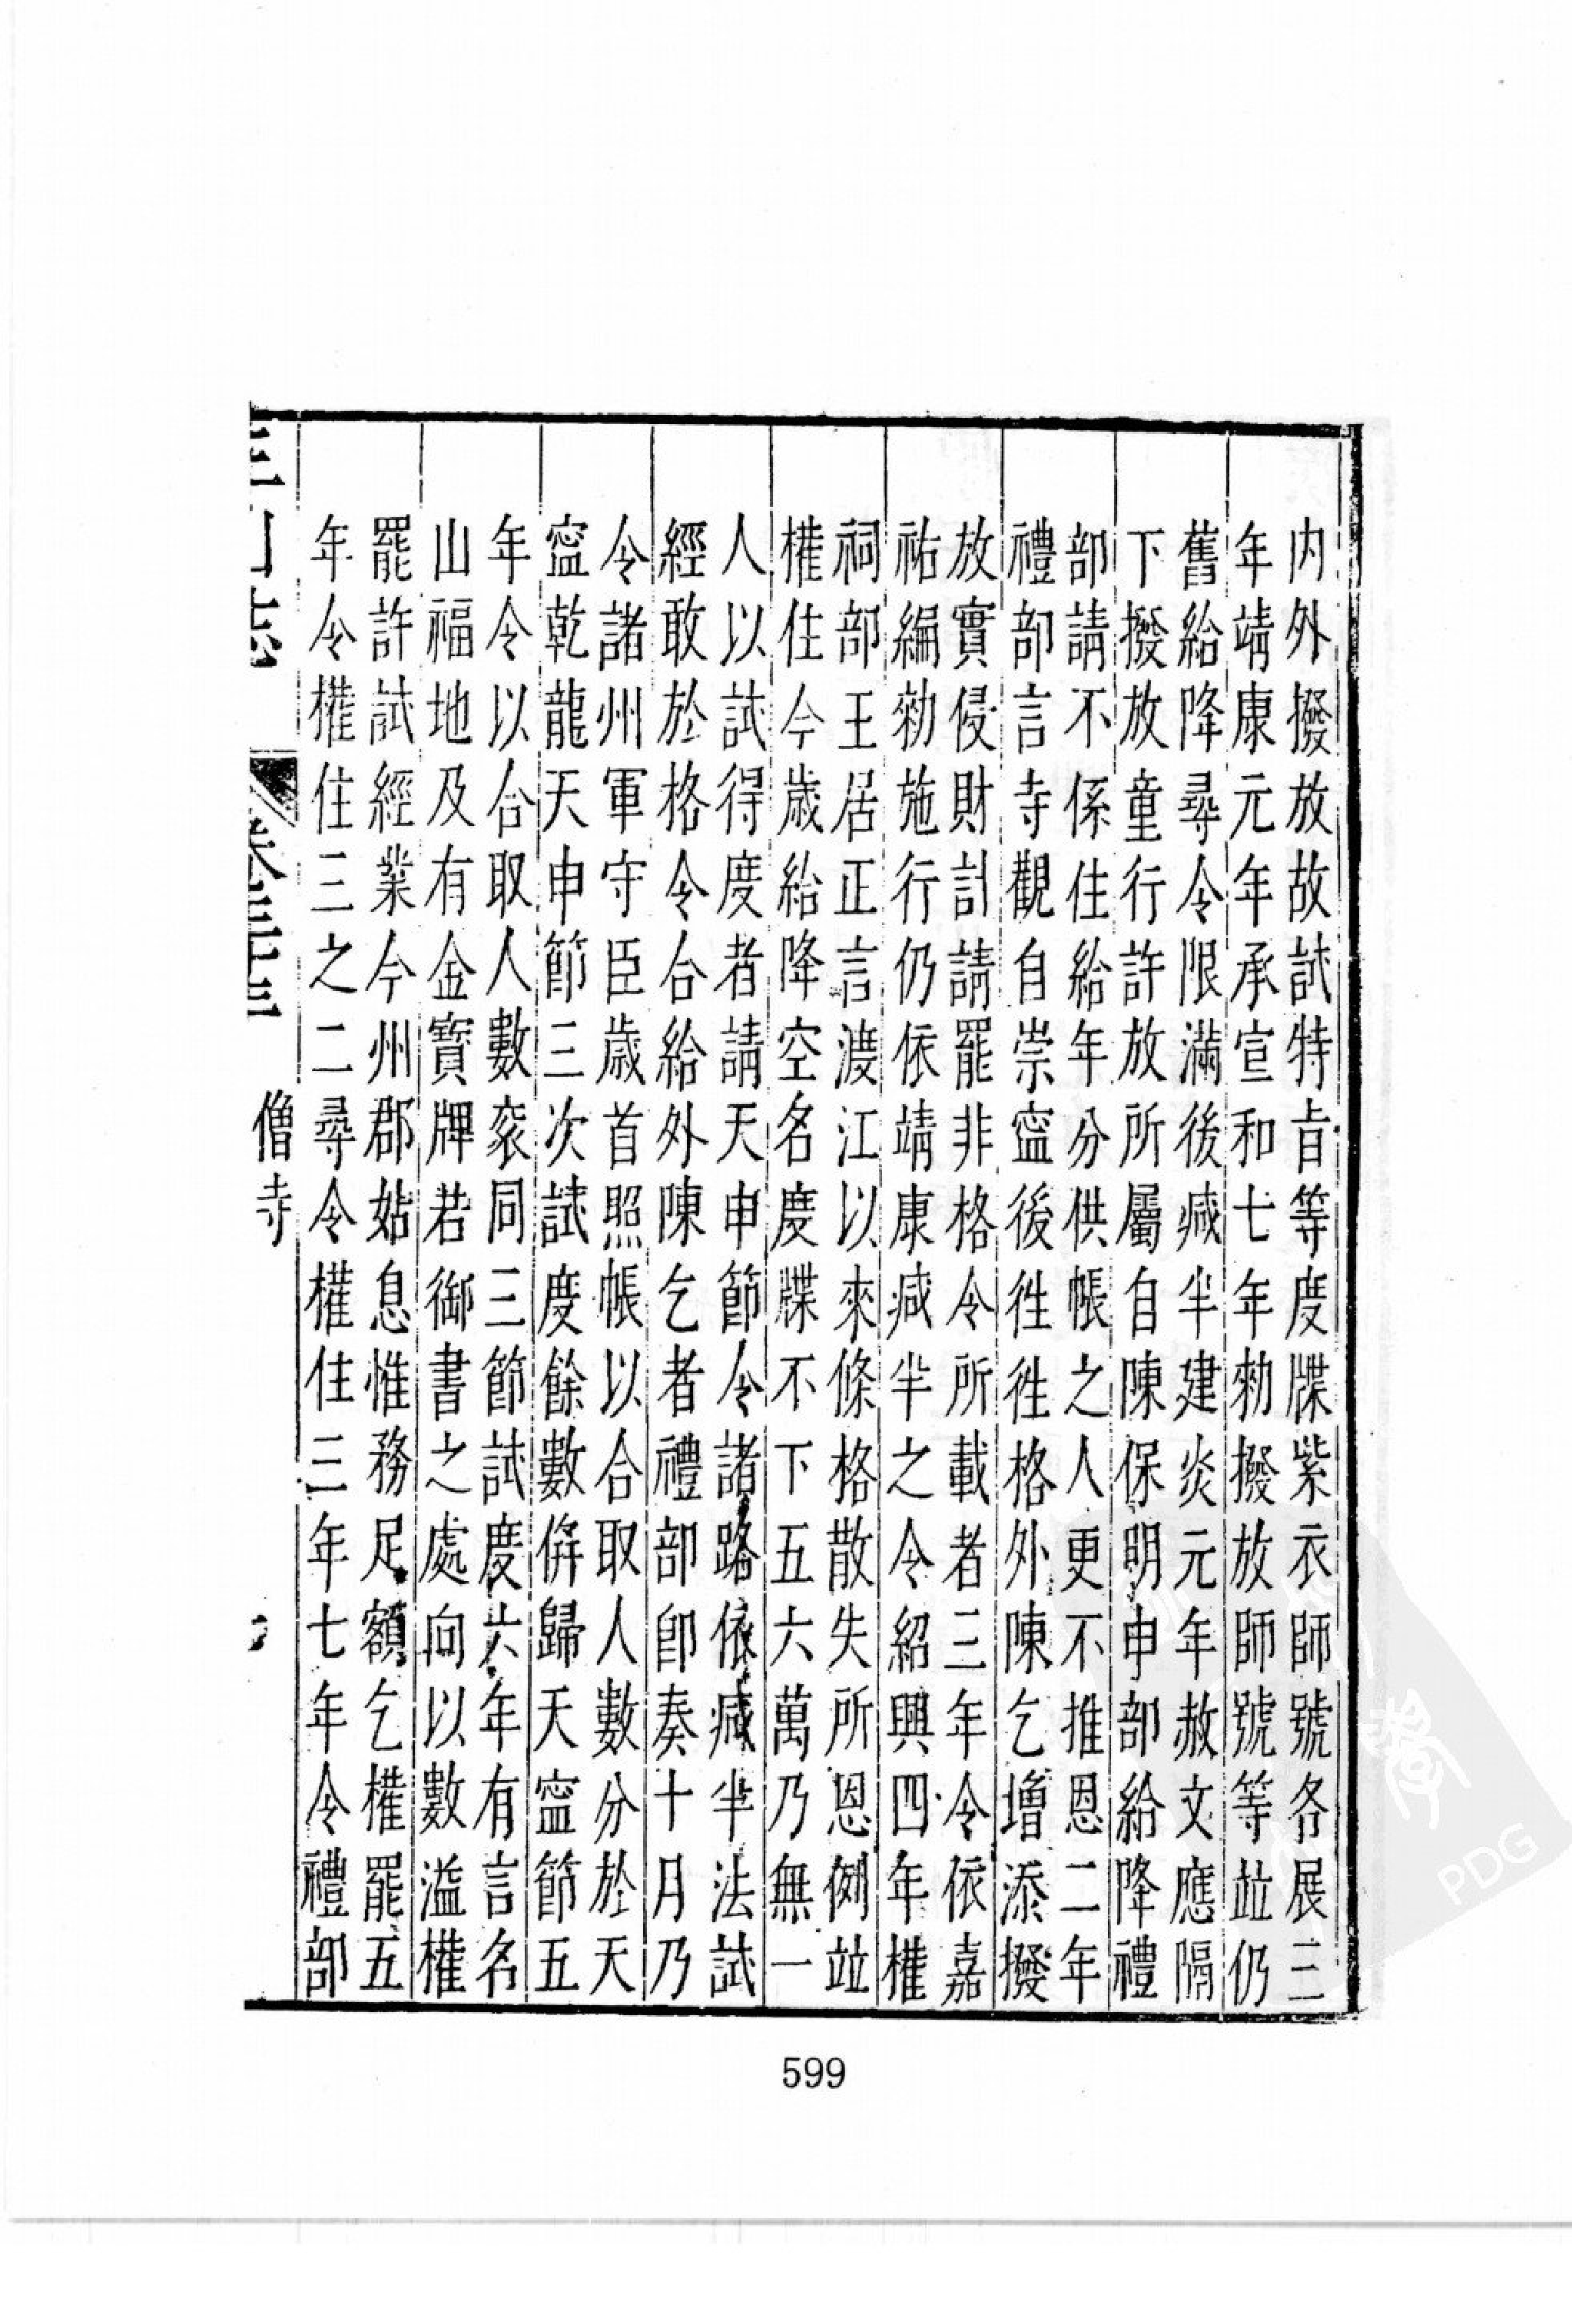 内外撥放故試特旨等度牒紫衣師號各展三
年靖康元年承宣和七年勑撥放師號等並仍
舊給降尋令限滿後减半建炎元年赦文應隔
下撥放童行許放所屬自陳保明申部給降禮
部請不係住給年分供帳之人更不推恩二年
禮部言寺觀自崇寧後徃徃格外陳乞增添撥
放實侵財計請罷非格令所載者三年令依嘉
祐編勑施行仍依靖康减半之令紹興四年權
祠部王居正言渡江以來條格散失所恩例並
權住今歲給降空名度牒不下五六萬乃無一
人以試得度者請天申節令諸路依减半法試
經敢於格令合給外陳乞者禮部卽奏十月乃
令諸州軍守臣歲首照帳以合取人數分於天
寧乾龍天申節三次試度餘數併歸天寧節五
年令以合取人數衮同三節試度六年有言名
山福地及有金寶牌若御書之處向以數溢權
罷許試經業今州郡姑息惟務足額乞權罷五
年令權住三之二尋令權住三年七年令禮部
三山志
卷三十三
僧寺
599
PDG